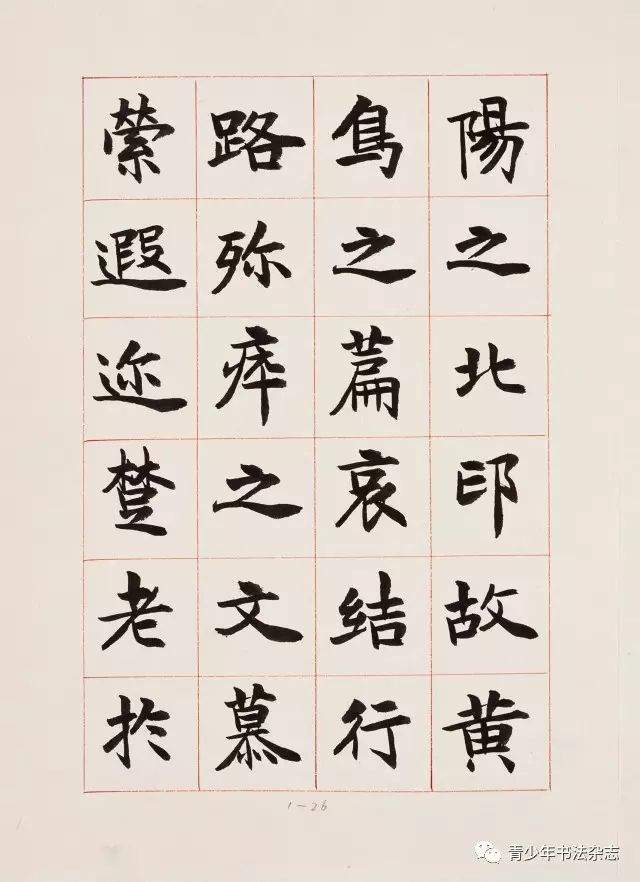 陽之北印故黄
鳥之篇哀結行
路殄瘁之文慕
縈遐迩楚老於
1-26
青少年书法杂志